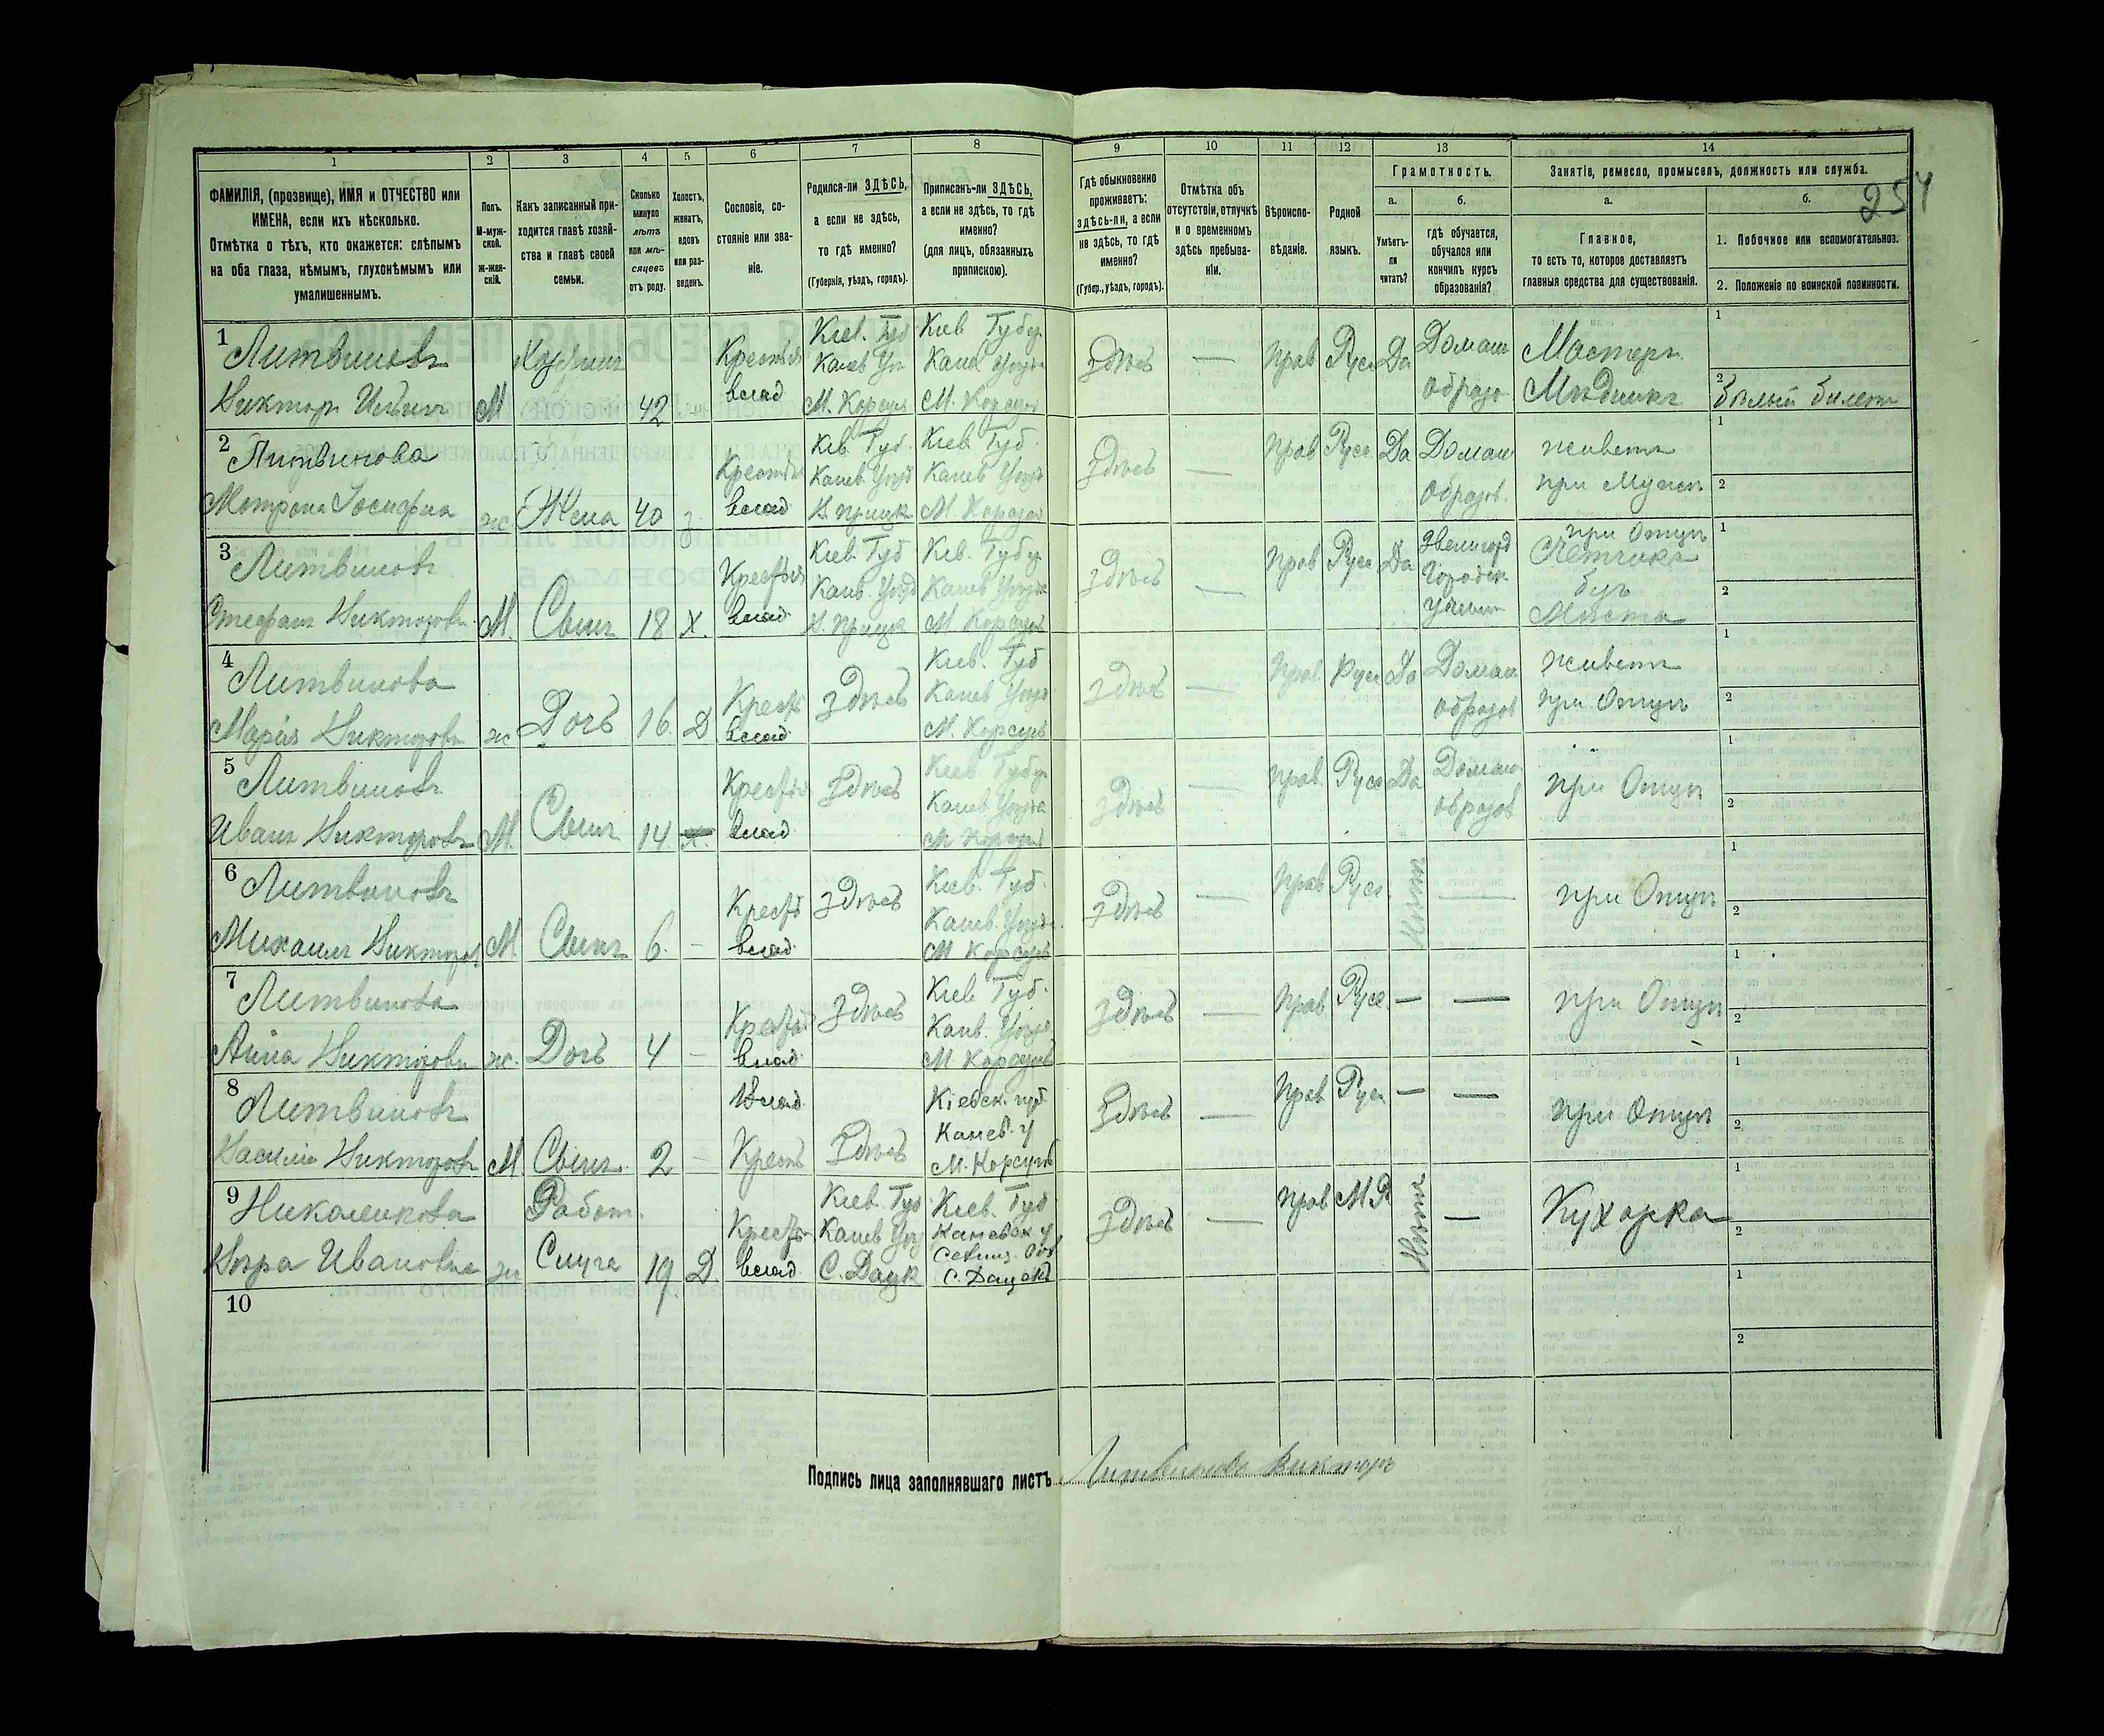 254
1 2 3 4 5 6 7 8 9 10 11 12 13 14
ФАМИЛІЯ, (прозвище), ИМЯ и ОТЧЕСТВО или ИМЕНА, если ихъ нѣсколько.
Отмѣтка о тѣхъ, кто окажется: слѣпымъ на оба глаза, нѣмымъ, глухонѣмымъ или умалишеннымъ.
Полъ.
М-муж-
ской.
Ж-жен-
скій.
Какъ записанный при-
ходится главѣ хозяй-
ства и главѣ своей
семьи.
Сколько
минуло
лѣтъ
или мѣ-
сяцевъ
отъ роду.
Холостъ,
женатъ,
вдовъ
или раз-
веденъ.
Сословіе, со-
стояніе или зва-
ніе.
Родился-ли ЗДѢСЬ,
а если не здѣсь,
то гдѣ именно?
(Губернія, уѣздъ, городъ).
Приписанъ-ли ЗДѢСЬ,
а если не здѣсь, то гдѣ
именно?
(для лицъ, обязанныхъ
припискою).
Гдѣ обыкновенно
проживаетъ:
здѣсь-ли, а если
не здѣсь, то гдѣ
именно?
(Губер., уѣздъ, городъ).
Отмѣтка объ
отсутствіи, отлучкѣ
и о временномъ
здѣсь пребыва-
ніи.
Вѣроиспо-
вѣданіе.
Родной
языкъ.
Грамотность.
а.
Умѣетъ-
ли
читать?
б.
гдѣ обучается,
обучался или
кончилъ курсъ
образованія?
Занятіе, ремесло, промыселъ, должность или служба.
а.
Главное,
то есть то, которое доставляетъ
главныя средства для существованія.
б.
1. Побочное или вспомогательное.
2. Положеніе по воинской повинности.
1 Литвиновъ
Викторъ М 42
Кіев. Губ
М. Корсунь
Кіев Губер
М. Корсунь
здѣсь — прав Русс Да Домаш образо
Мастеръ
Мѣдникъ
1
2 бѣлый билетъ
2 Литвинова
Мотрона Іосифна ж Жена 40 з.
Кіев. Губ.
Канев. Уѣзд
Кіев Губ.
Канев Уѣзд
М. Корсунь
здѣсь — прав Русс Да Домаш образов.
живетъ
при Мужѣ
1
2
3 Литвиновъ
Стефанъ Викторовъ М. Сынъ 18 Х.
Кіев Губ
Канев. Уѣзд
Кіев. Губер
Канев Уѣзда
М Корсунь
здѣсь — прав Русс Да Звенигор Городск училищ
при Отцѣ
безъ
Мѣста
1
2
4 Литвинова
Марія Викторовн ж Дочь 16. Д
здѣсь
Кіев. Губ
Канев Уѣзд
М. Корсунь
здѣсь — прав Русс Да Домаш образов
живетъ
при Отцѣ
1
2
5 Литвиновъ
Иванъ Викторовъ М. Сынъ 14.
здѣсь
Кіев. Губер
Канев Уѣзда
М Корсунь
здѣсь — прав. Русс Да Домаш образов
при Отцѣ
1
2
6 Литвиновъ
Михаилъ Викторов М. Сынъ 6. —
здѣсь
Кіев. Губ.
Канев. Уѣзд
М Корсунь
здѣсь — прав Русс —
при Отцѣ
1
2
7 Литвинова
Анна Викторовн ж. Дочь 4 —
здѣсь
Кіев Губ.
Канев. Уѣзд
М Корсунь
здѣсь — прав Русс. — —
при Отцѣ
1
2
8 Литвиновъ
Василій Викторовъ М. Сынъ 2 —
Крест здѣсь
Кіевск. губ
Канев. у
М. Корсунь
здѣсь — прав Русс — —
при Отцѣ
1
2
9
Вѣра Ивановна ж
Работ.
Слуга 19 Д.
Кіев. Губ
Канев Уѣзд
Кіев. Губ
Каневск у
здѣсь — прав М Р —
Кухарка
1
2
10
1
2
Подпись лица заполнявшаго листъ Литвиновъ Викторъ